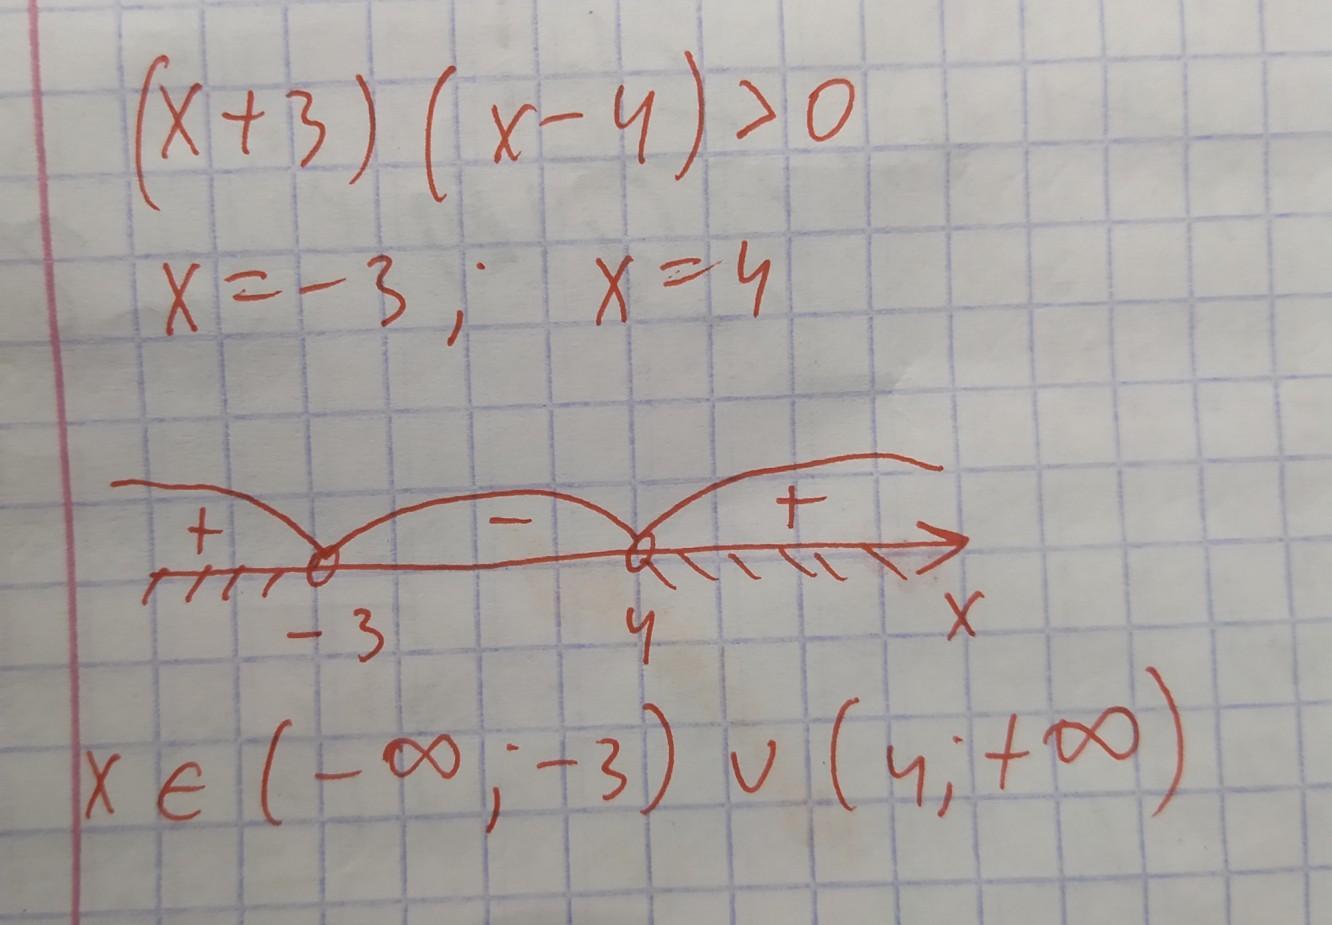 (x+3) (x-4) >0
x=-3; x=4
+ - +
-3 4 x
x ∈ (-∞; -3) ∪ (4; +∞)